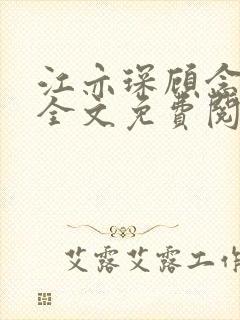 江亦琛顾念
全文免费阅
艾露艾露工作